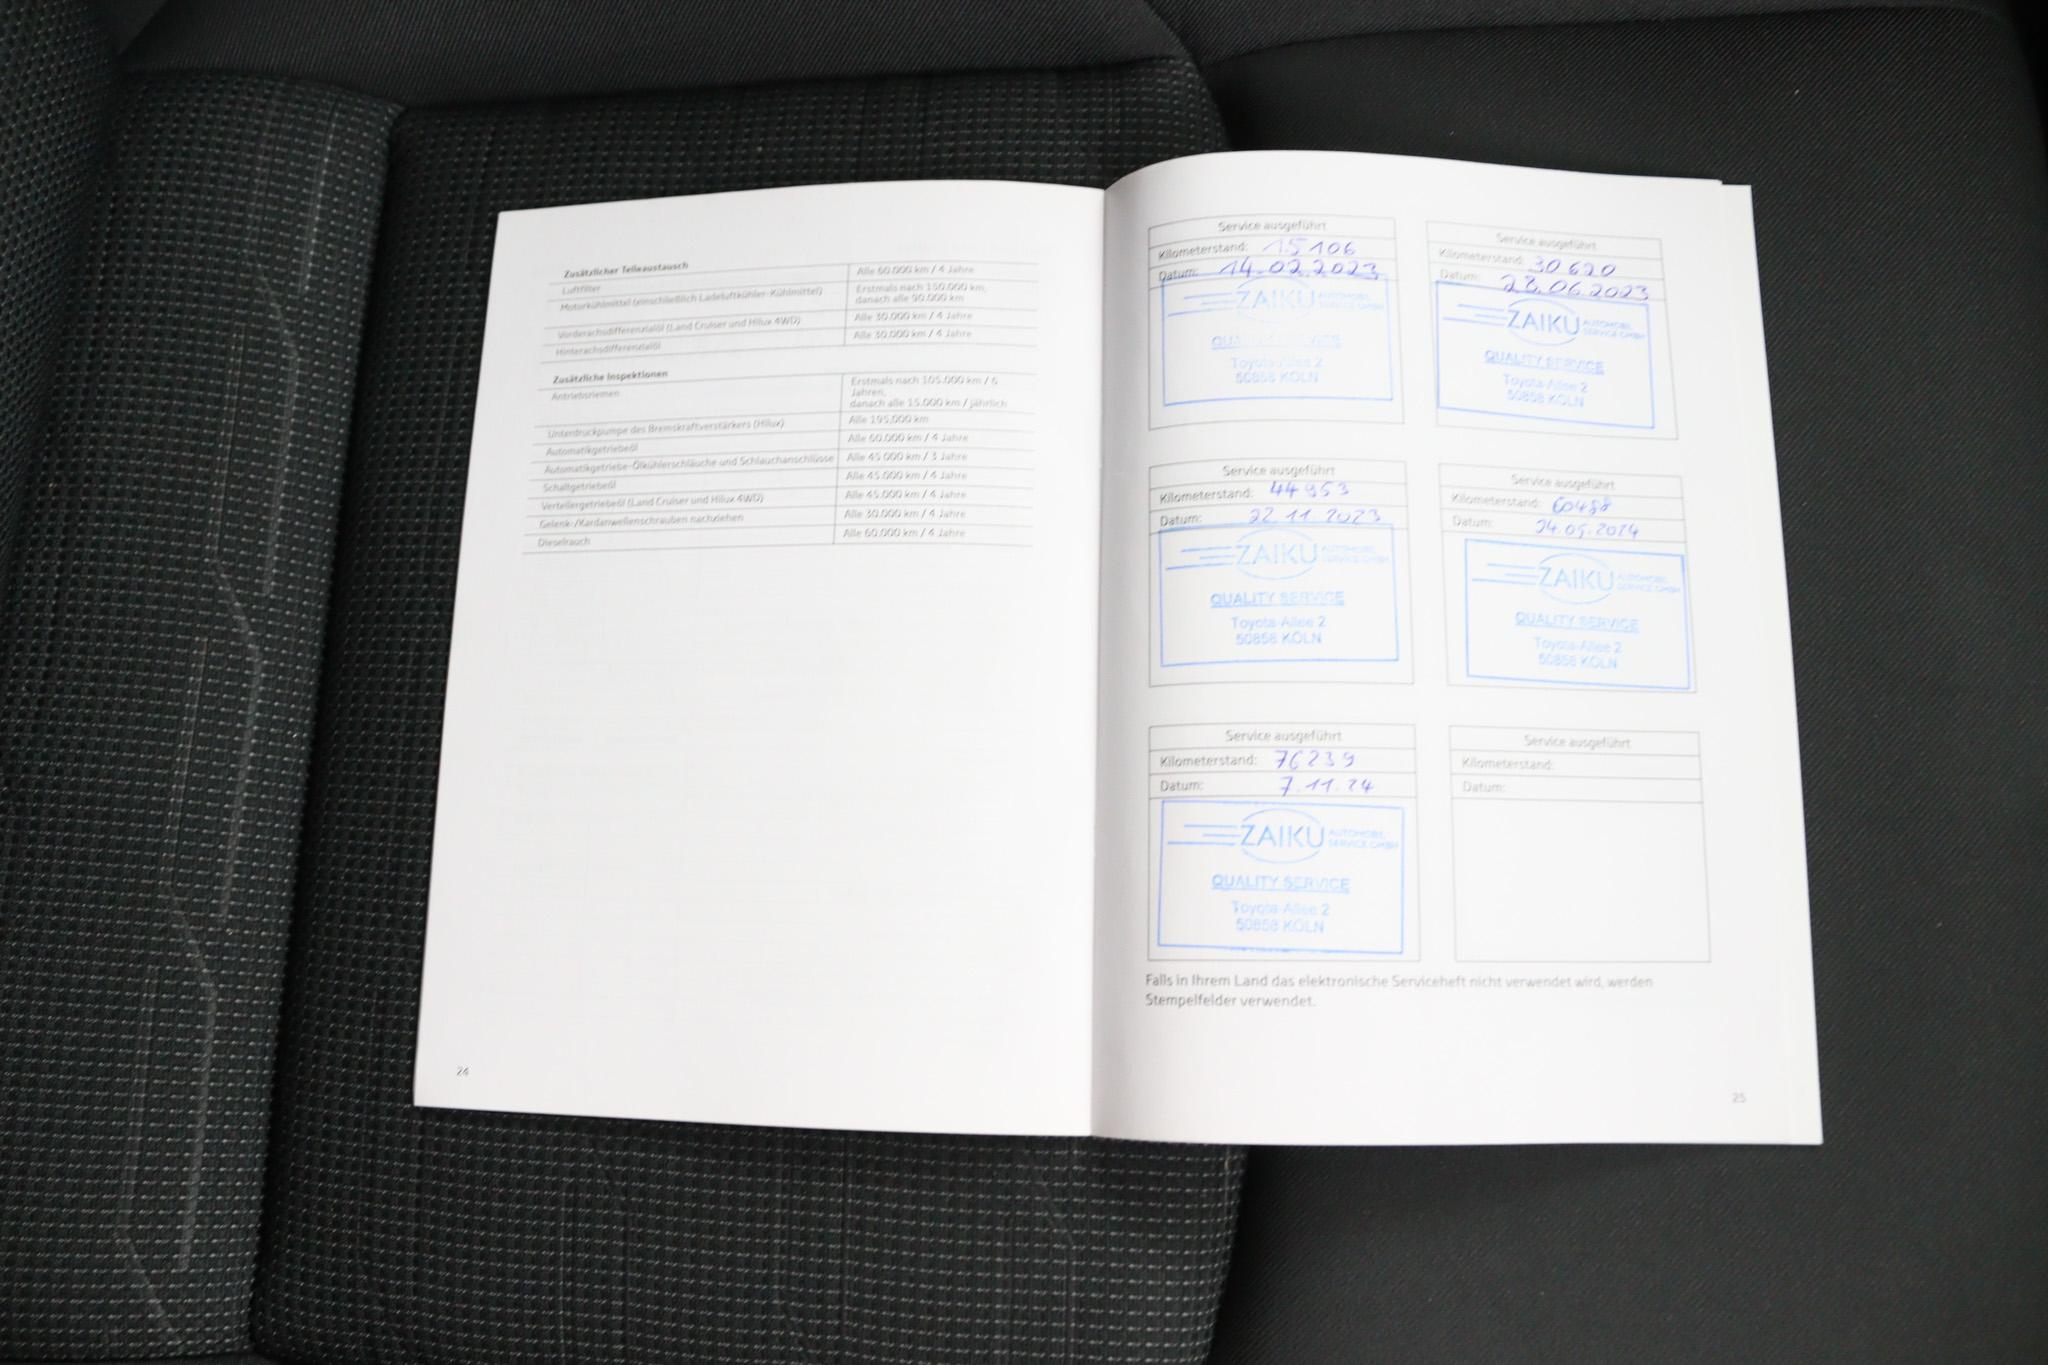 Zusätzlicher Teileaustausch
Luftfilter Alle 60.000 km / 4 Jahre
Motorkühlmittel (einschließlich Ladeluftkühler-Kühlmittel) Erstmals nach 150.000 km,
danach alle 90.000 km
Vorderachsdifferenzialöl (Land Cruiser und Hilux 4WD) Alle 30.000 km / 4 Jahre
Hinterachsdifferenzialöl Alle 30.000 km / 4 Jahre
Zusätzliche Inspektionen
Antriebsriemen Erstmals nach 105.000 km / 6
Jahren,
danach alle 15.000 km / jährlich
Unterdruckpumpe des Bremskraftverstärkers (Hilux) Alle 195.000 km
Automatikgetriebeöl Alle 60.000 km / 4 Jahre
Automatikgetriebe-Ölkühlerschläuche und Schlauchanschlüsse Alle 45.000 km / 3 Jahre
Schaltgetriebeöl Alle 45.000 km / 4 Jahre
Verteilergetriebeöl (Land Cruiser und Hilux 4WD) Alle 45.000 km / 4 Jahre
Gelenk-/Kardanwellenschrauben nachziehen Alle 30.000 km / 4 Jahre
Dieselrauch Alle 60.000 km / 4 Jahre
24
Service ausgeführt
Kilometerstand: 15106
Datum: 14.02.2023
ZAIKU AUTOMOBIL
SERVICE GMBH
QUALITY SERVICE
Toyota-Allee 2
50858 KÖLN
Service ausgeführt
Kilometerstand: 30620
Datum: 28.06.2023
ZAIKU AUTOMOBIL
SERVICE GMBH
QUALITY SERVICE
Toyota-Allee 2
50858 KÖLN
Service ausgeführt
Kilometerstand: 44953
Datum: 22.11.2023
ZAIKU AUTOMOBIL
SERVICE GMBH
QUALITY SERVICE
Toyota-Allee 2
50858 KÖLN
Service ausgeführt
Kilometerstand: 60488
Datum: 24.05.2024
ZAIKU AUTOMOBIL
SERVICE GMBH
QUALITY SERVICE
Toyota-Allee 2
50858 KÖLN
Service ausgeführt
Kilometerstand: 76239
Datum: 7.11.24
ZAIKU AUTOMOBIL
SERVICE GMBH
QUALITY SERVICE
Toyota-Allee 2
50858 KÖLN
Service ausgeführt
Kilometerstand:
Datum:
Falls in Ihrem Land das elektronische Serviceheft nicht verwendet wird, werden
Stempelfelder verwendet.
25